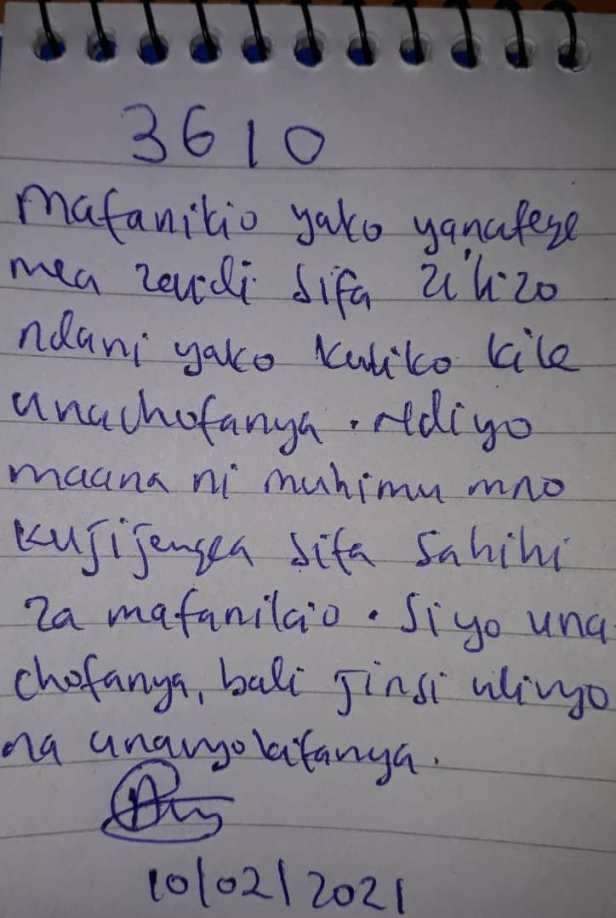 3610
Mafanikio yako yanatege
mea zaidi sifa zilizo
ndani yako kuliko kile
unachofanya. Ndiyo
maana ni muhimu mno
kujijengea sifa sahihi
za mafanikio. Siyo una
chofanya, bali jinsi ulivyo
na unavyokifanya.
10/02/2021